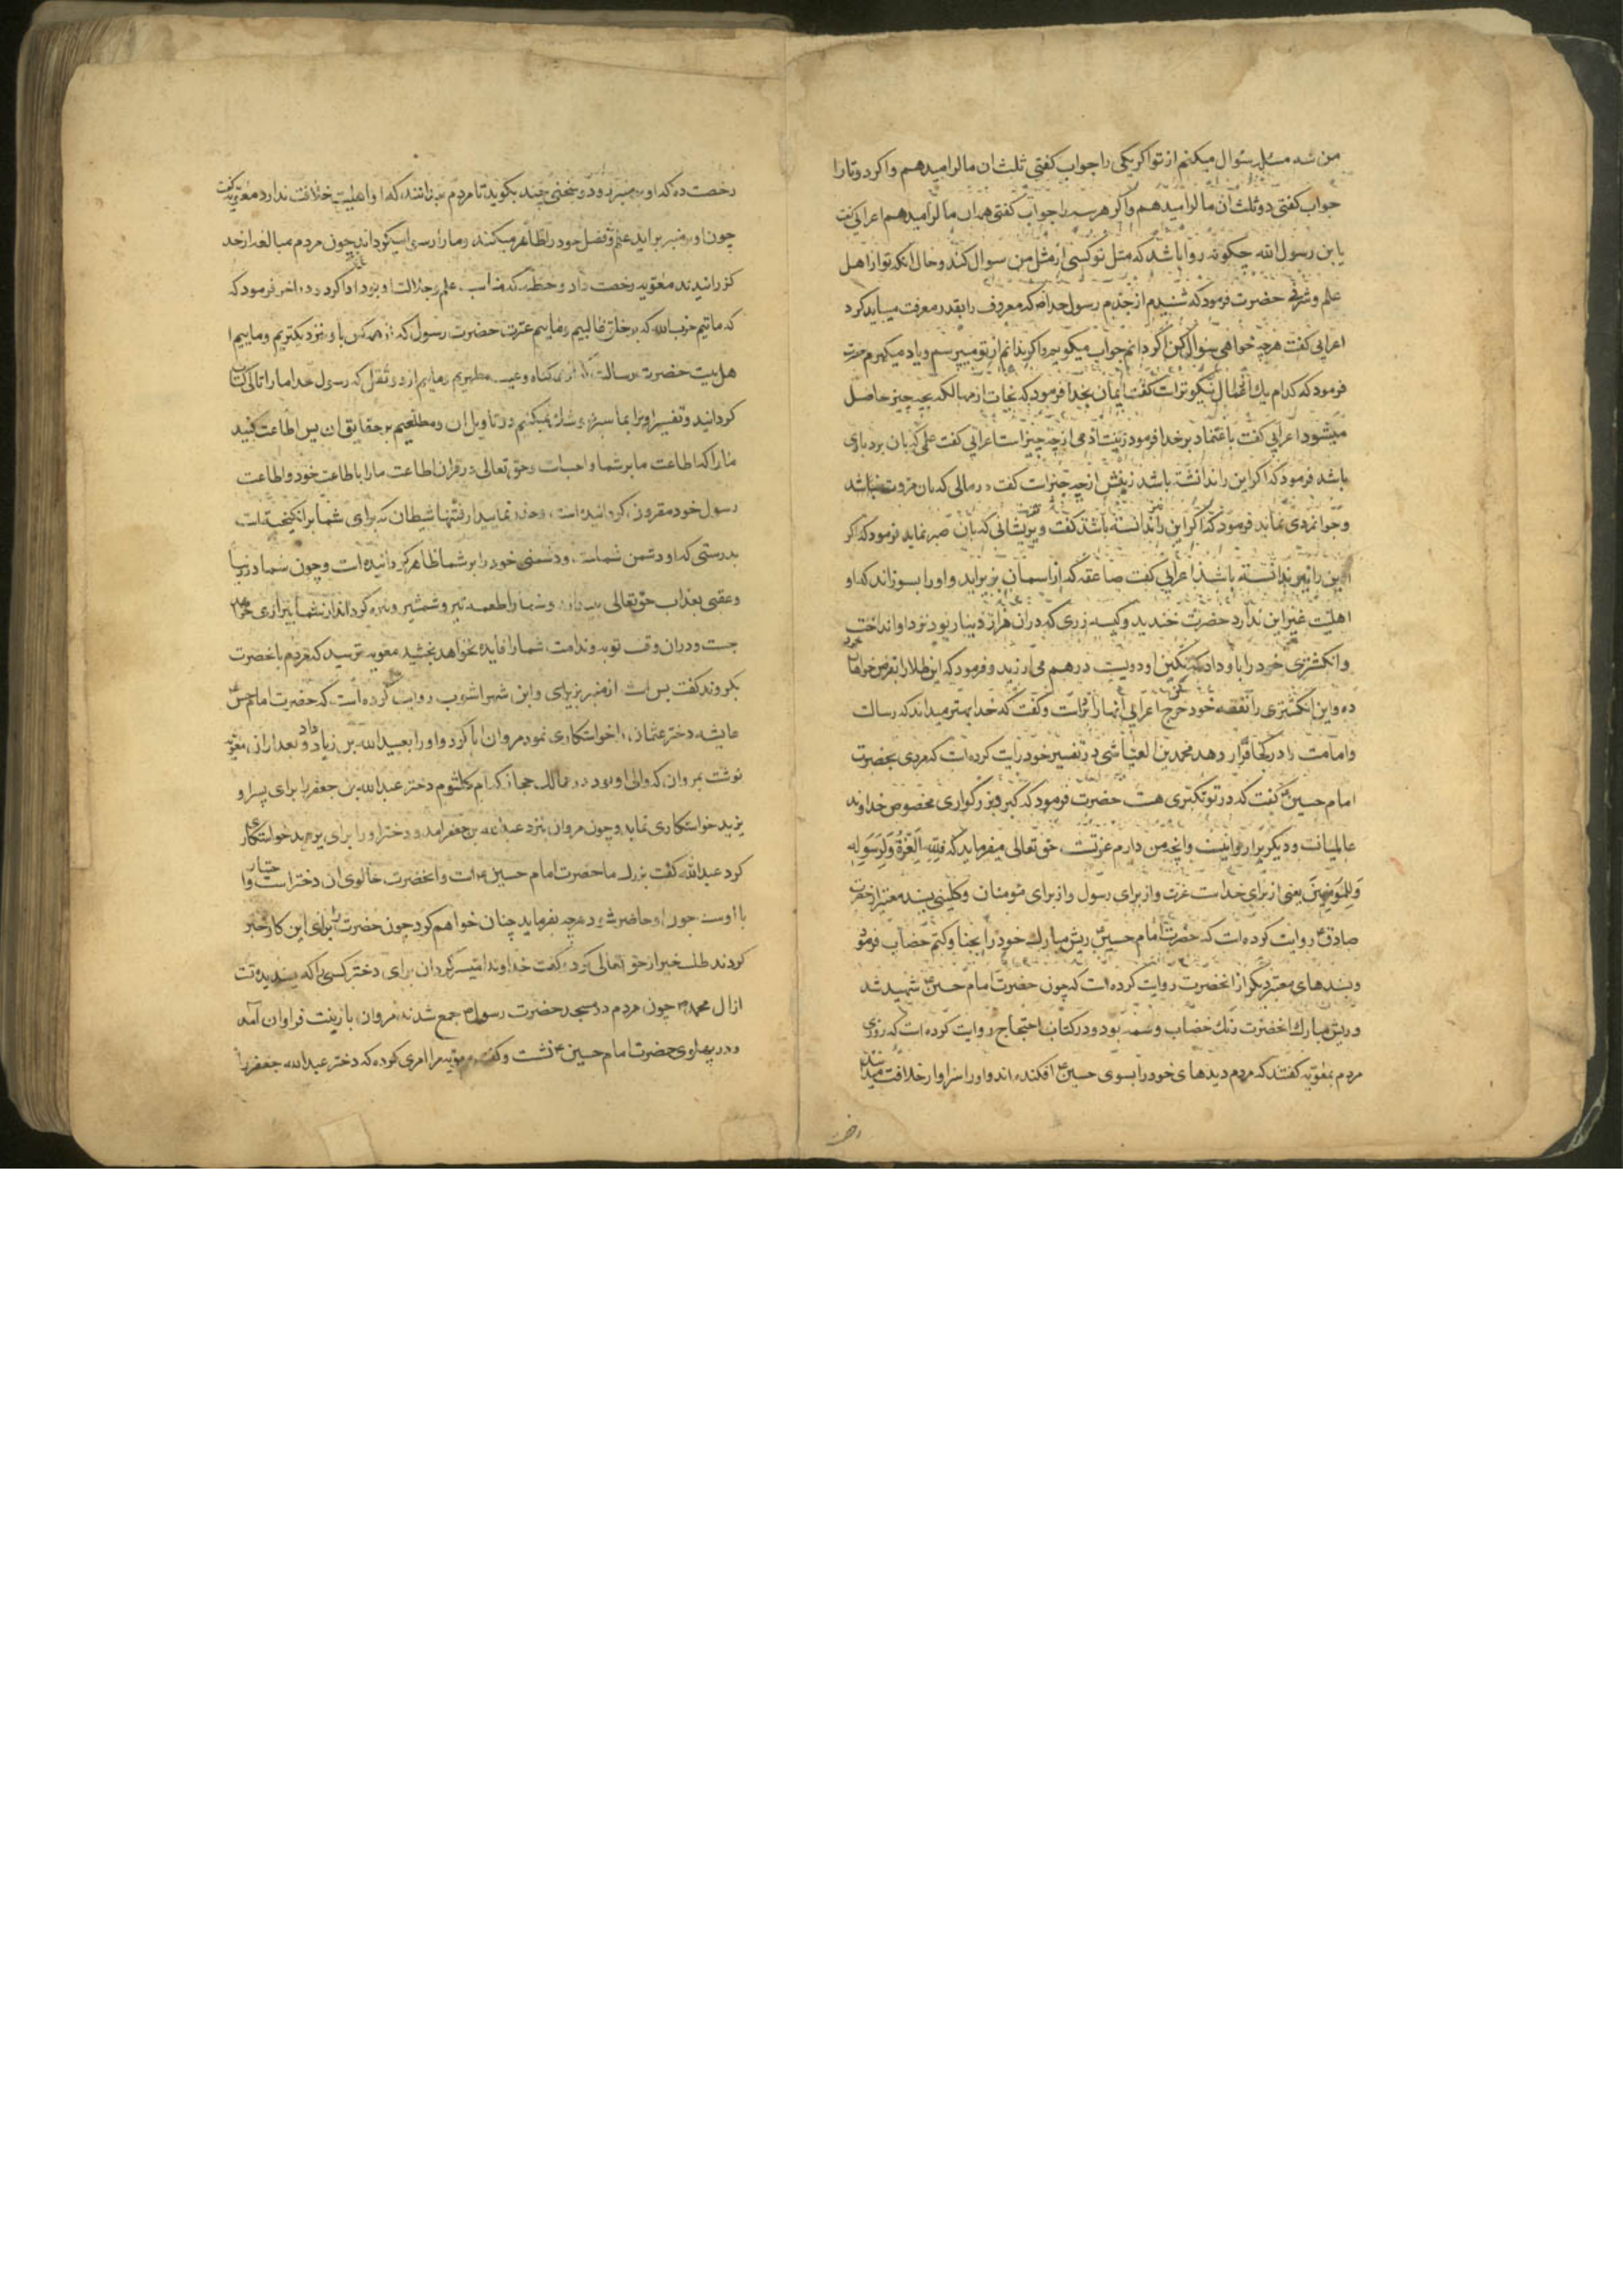 من سه مسئله سئوال میکنم از تو اکر یکی را جواب کفتی ثلث ان مال را میدهم واکر دو تا را
جواب کفتی دو ثلث ان مال را میدهم واکر هر سه را جواب کفتی همه ان مال را میدهم اعرابی کفت
یابن رسول الله چکونه روا باشد که مثل تو کسی از مثل من سوال کند وحال انکه تو از اهل
علم وشرفی حضرت فرمود که شنیدم از جدم رسول خدا که معروف را بقدر معرفت میباید کرد
اعرابی کفت هرچه خواهی سئوال کن اکر دانم جواب میکویم واکر ندانم از تو میپرسم ویاد میکیرم حضرت
فرمود که کدام یك از اعمال نیکوتر است کفت ایمان بخدا فرمود که نجات از مهالکه بچه چیز حاصل
میشود اعرابی کفت باعتماد بر خدا فرمود زینت ادمی از چه چیز است اعرابی کفت علمی که بان بردباری
باشد فرمود که اکر این را ندانسته باشد زینتش از چه چیز است کفت مالی که بان مروت باشد
وجوانمردی نماید فرمود که اکر این را ندانسته باشد کفت وپریشانی که بان صبر نماید فرمود که اکر
این را نیز ندانسته باشد اعرابی کفت صاعقه که از اسمان بزیر اید و او را بسوزاند که او
اهلیت غیر این ندارد حضرت خندید وکیسه زری که دران هزار دینار بود نزد او انداخت
وانکشتری خود را باو داد که نکین او دویست درهم می ارزید وفرمود که این طلا را بقرض خواهان خود
ده واین انکشتری را نفقه خود خرج کن اعرابی انها را برداشت وکفت که خدا بهتر میداند که رسالت
وامامت را در کجا قرار دهد محمد بن العیاشی در تفسیر خود روایت کرده است که مردی بحضرت
امام حسین ع کفت که در تو تکبری هست حضرت فرمود که کبر وبزرکواری مخصوص خداوند
عالمیانست ودیکری را روا نیست وانچه من دارم عزتست حق تعالی میفرماید که فَلِلّهِ الْعِزَّةُ وَلِرَسُولِهِ
وَلِلْمُؤمِنینَ یعنی از برای خداست عزت واز برای رسول واز برای مؤمنان وکلینی بسند معتبر از حضرت
صادق ع روایت کرده است که حضرت امام حسین ع ریش مبارك خود را بحنا وکتم خضاب فرمود
وبسندهای معتبر دیکر از انحضرت روایت کرده است که چون حضرت امام حسین ع شهید شد
وریش مبارك انحضرت رنك خضاب وسمه بود ودر کتاب احتجاج روایت کرده است که روزی
مردم بمعویه کفتند که مردم دیدهای خود را بسوی حسین ع افکنده اند واو را سزاوار خلافت میدانند
رخصت ده که او بر منبر رود وسخنی چند بکوید تا مردم بدانند که او اهلیت خلافت ندارد معویه کفت
چون او بر منبر براید علم وفضل خود را ظاهر میکند وما را رسوا میکرداند چون مردم مبالغه از حد
کذرانیدند معویه رخصت داد وخطبه که مناسب علم وجلالت او بود ادا کرد ودر اخر فرمود که
که مائیم حزب الله که بر خلق غالبیم ومائیم عترت حضرت رسول که از همه کس باو نزدیکتریم وماییم ا
هل بیت حضرت رسالت که از کناه وعیب مطهریم وماییم از دو ثقل که رسول خدا ما را تالی کتاب
کردانید وتفسیر او را بما سپرده وشك نمیکنیم در تاویل ان ومطلعیم بر حقایق ان پس اطاعت کنید
ما را که اطاعت ما بر شما واجبست وحق تعالی در قران اطاعت ما را باطاعت خود واطاعت
رسول خود مقرون کردانیده است وحذر نمایید از فتنها شیطان که برای شما برانکیخته است
بدرستی که او دشمن شماست ودشمنی خود را بر شما ظاهر کردانیده است وچون شما در دنیا
وعقبی بعذاب حق تعالی وشما را طعمه تیر وشمشیر ونیزه کرداند از شما بیزاری خواهد
جست ودران وقت توبه وندامت شما را فایده نخواهد بخشید معویه ترسید که مردم بانحضرت
بکروند کفت بس است از منبر بزیر ای وابن شهر اشوب روایت کرده است که حضرت امام حسن ع
عایشه دختر عثمان را خواستکاری نمود مروان ابا کرد واو را بعبید الله بن زیاد داد وبعد از ان معویه
نوشت بمروان که والی او بود در ممالك حجاز که ام کلثوم دختر عبدالله بن جعفر را برای پسر او
یزید خواستکاری نماید وچون مروان بنزد عبدالله بن جعفر امد ودختر او را برای یزید خواستکاری
کرد عبدالله کفت بزرك ما حضرت امام حسین ع است وانحضرت خالوی ان دختر است واختیار
با اوست چون او حاضر شود هرچه بفرماید چنان خواهم کرد چون حضرت را برای این کار خبر
کردند طلب خیر از حق تعالی کرد وکفت خداوندا میسر کردان برای دختر کسی را که پسندیده تست
از ال محمد ص چون مردم در مسجد حضرت رسول ص جمع شدند مروان با زینت فراوان آمد
ودر پهلوی حضرت امام حسین ع نشست وکفت معویه مرا امری کرده که دختر عبدالله جعفر را